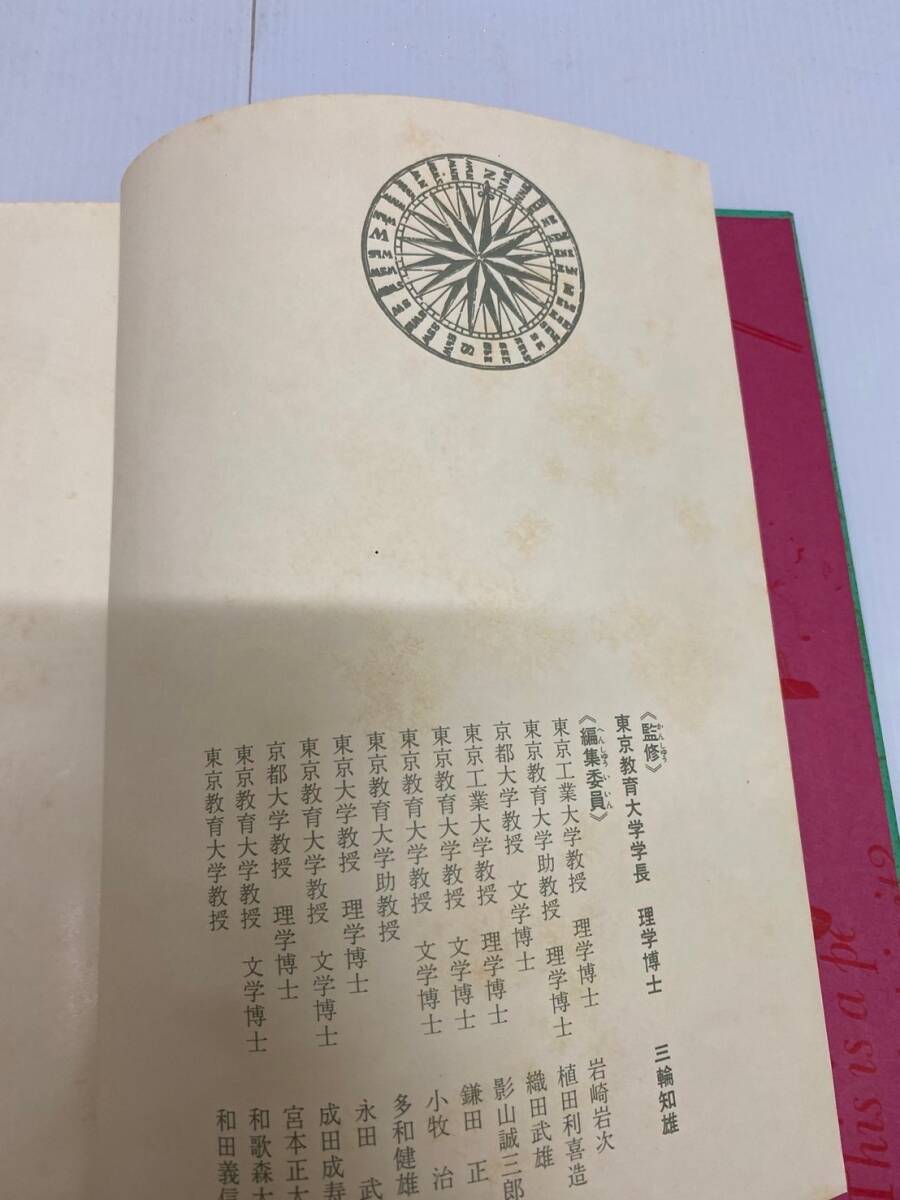 《監修》
東京教育大学学長 理学博士 三輪知雄
《編集委員》
東京工業大学教授 理学博士 岩崎岩次
東京教育大学助教授 理学博士 植田利喜造
京都大学教授 文学博士 織田武雄
東京工業大学教授 理学博士 影山誠三郎
東京教育大学教授 文学博士 鎌田 正
東京教育大学教授 文学博士 小牧 治
東京教育大学助教授 多和健雄
東京大学教授 理学博士 永田 武
東京教育大学教授 文学博士 成田成寿
京都大学教授 理学博士 宮本正太
東京教育大学教授 文学博士 和歌森太
東京教育大学教授 和田義信
This is a pe